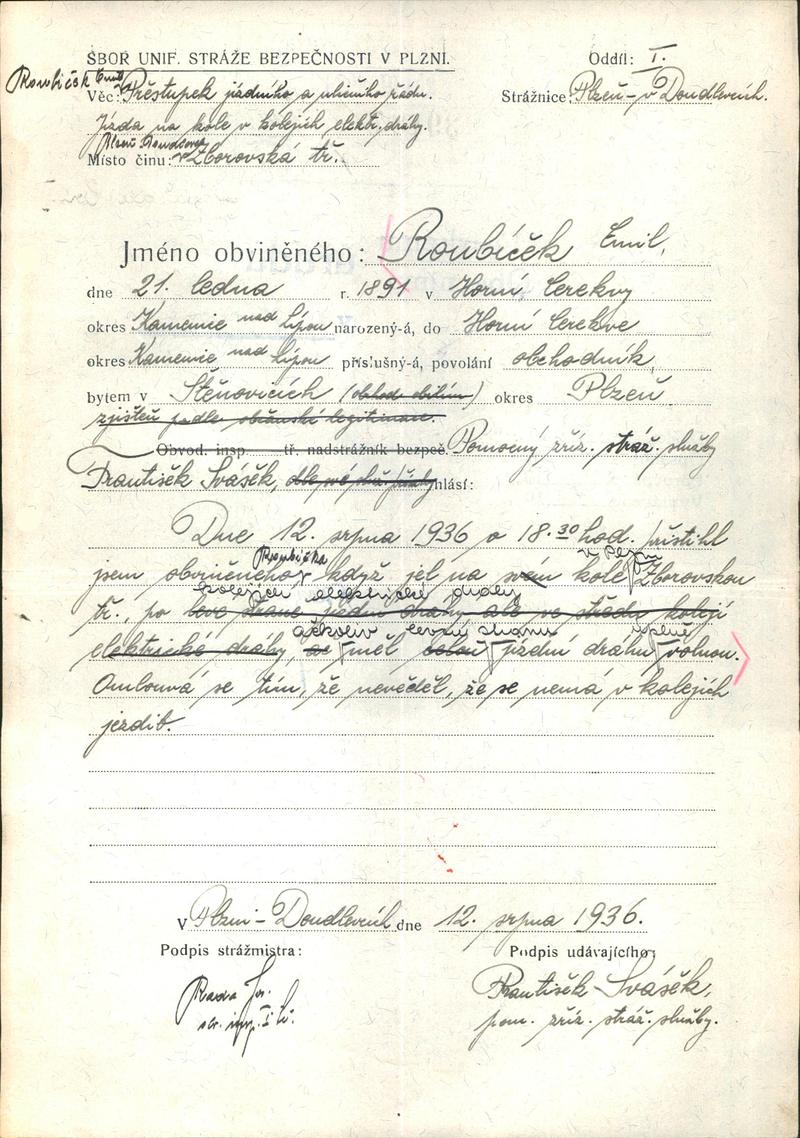 SBOR UNIF. STRÁŽE BEZPEČNOSTI V PLZNI.
Oddíl: I.
Roubíček Emil
Věc: Přestupek jízdního a uličního řádu.
Strážnice: Plzeň - v Doudlevcích.
Jízda na kole v kolejích elektr. dráhy.
Plzeň Doudlevce
Místo činu: Zborovská tř.
Jméno obviněného: Roubíček Emil,
dne 21. ledna r. 1891 v Horní Cerekvy
okres Kamenice nad Lipou narozený-á, do Horní Cerekve
okres Kamenice nad Lipou příslušný-á, povolání obchodník,
bytem v Štěnovicích (obchod obilím) okres Plzeň
zjištěn podle občanské legitimace.
Obvod. insp. tř. nadstrážník bezpeč. Pomocný zříz. stráž. služby
František Svášek, hlásí:
Dne 12. srpna 1936 o 18.30 hod. přistihl
Roubíčka v Plzni
jsem obviněného když jel na svém kole Zborovskou
kolejích elektrické dráhy
tř., po levé straně jízdní dráhy ale ve středu kolejí
ačkoliv levou stranu úplně
elektrické dráhy, měl celou jízdní dráhu volnou.
Omlouvá se tím, že nevěděl, že se nemá v kolejích
jezdit.
V Plzni - Doudlevcích dne 12. srpna 1936.
Podpis strážmistra:
Podpis udávajícího:
František Svášek,
pom. zříz. stráž. služby.